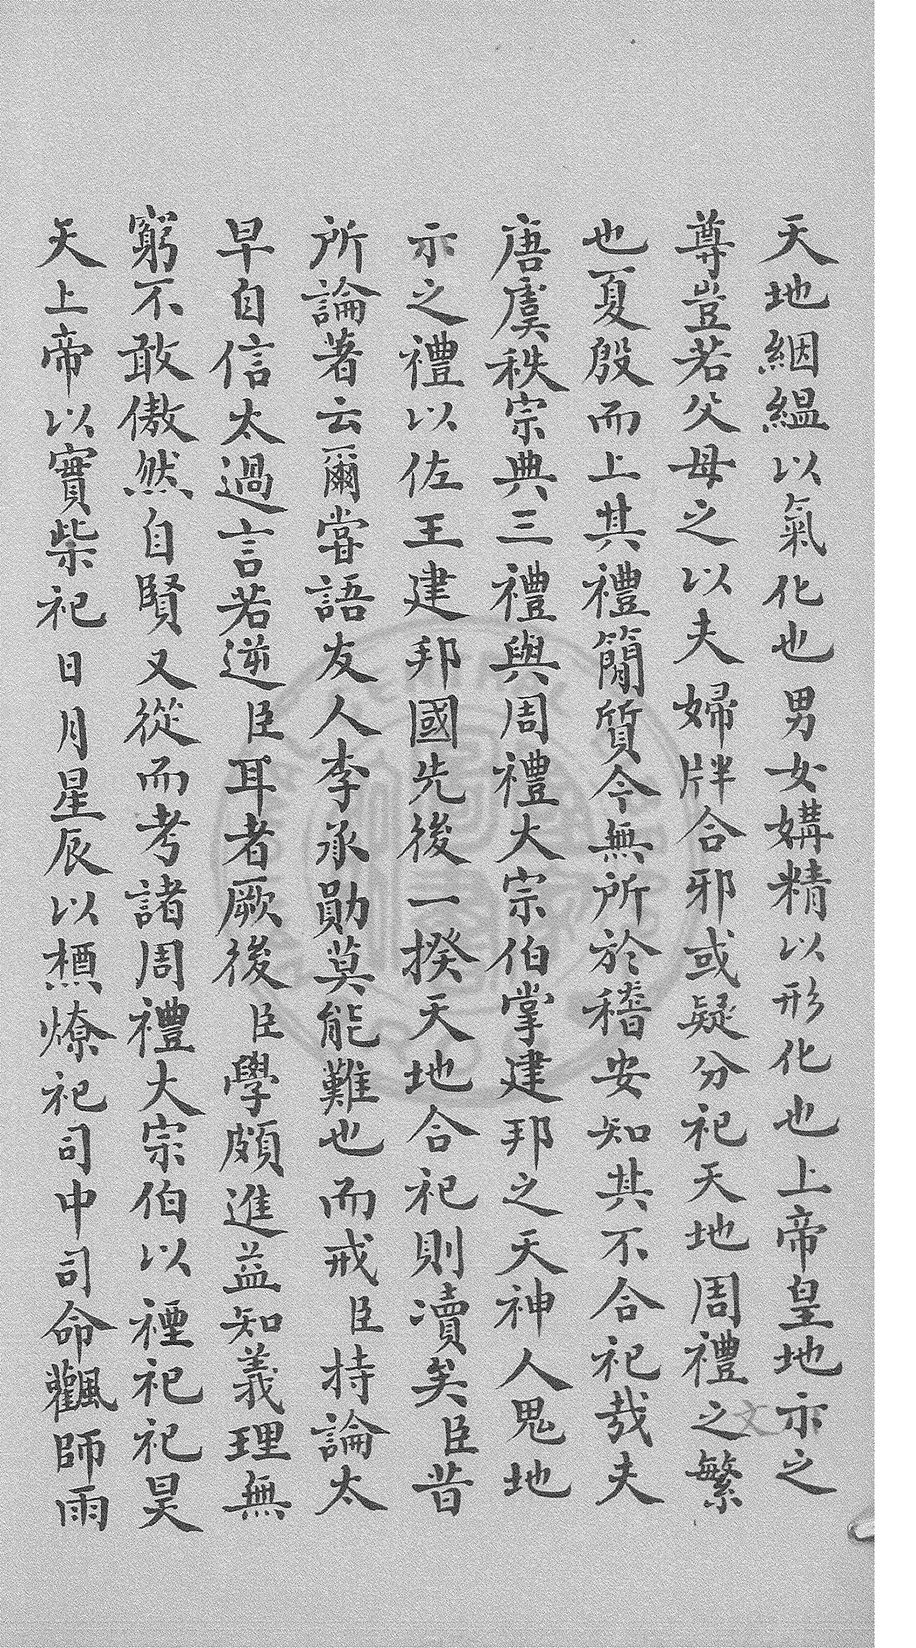 天地絪縕以氣化也男女媾精以形化也上帝皇地示之
尊豈若父母之以夫婦牉合邪或疑分祀天地周禮之繁
也夏殷而上其禮簡質今無所於稽安知其不合祀哉夫
唐虞秩宗典三禮與周禮大宗伯掌建邦之天神人鬼地
示之禮以佐王建邦國先後一揆天地合祀則瀆矣臣昔
所論著云爾嘗語友人李承勛莫能難也而戒臣持論太
早自信太過言若逆臣耳者厥後臣學頗進益知義理無
窮不敢傲然自賢又從而考諸周禮大宗伯以禋祀祀昊
天上帝以實柴祀日月星辰以槱燎祀司中司命飌師雨